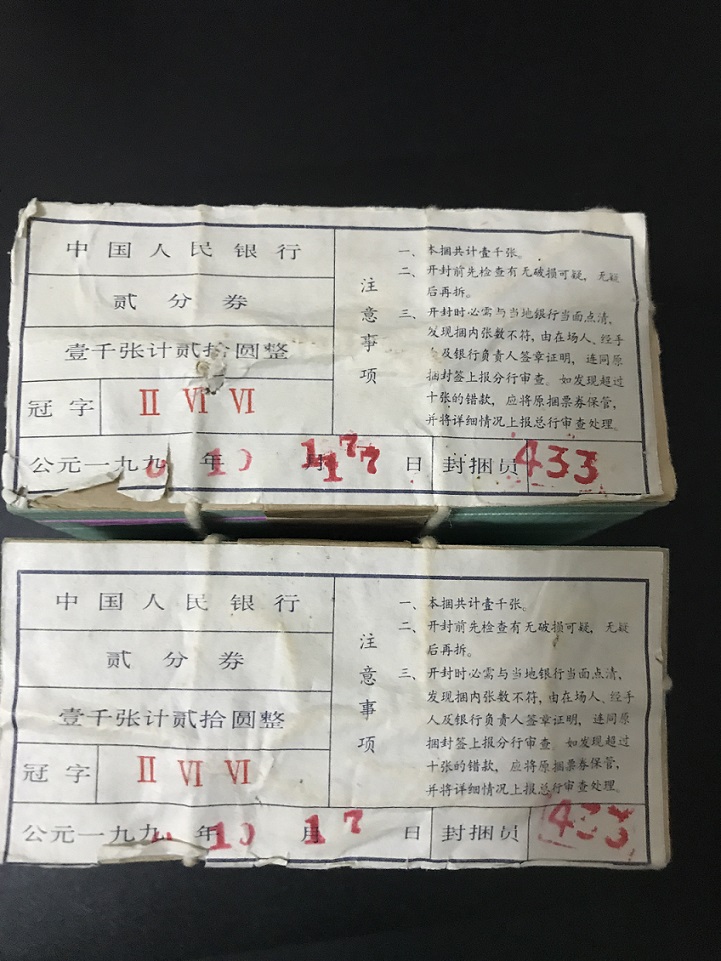 中国人民银行
贰分券
壹千张计贰拾圆整
冠字 Ⅱ Ⅵ Ⅵ
公元一九九 年 10 月 17 日 封捆员 433
注意事项
一、本捆共计壹千张。
二、开封前先检查有无破损可疑，无疑
后再拆。
三、开封时必需与当地银行当面点清，
发现捆内张数不符，由在场人、经手
及银行负责人签章证明，连同原
捆封签上报分行审查。如发现超过
十张的错款，应将原捆票券保管，
并将详细情况上报总行审查处理。
中国人民银行
贰分券
壹千张计贰拾圆整
冠字 Ⅱ Ⅵ Ⅵ
公元一九九 年 10 月 17 日 封捆员 433
注意事项
一、本捆共计壹千张。
二、开封前先检查有无破损可疑，无疑
后再拆。
三、开封时必需与当地银行当面点清，
发现捆内张数不符，由在场人、经手
人及银行负责人签章证明，连同原
捆封签上报分行审查。如发现超过
十张的错款，应将原捆票券保管，
并将详细情况上报总行审查处理。